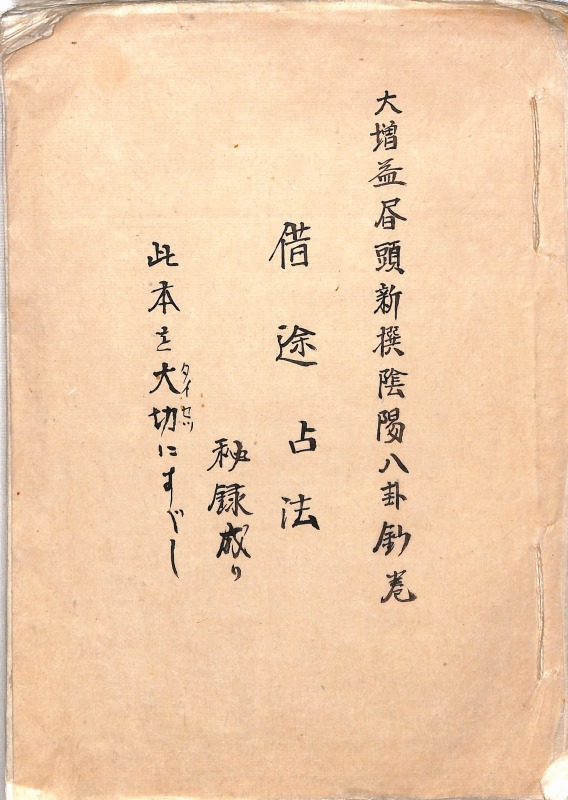 大増益昼頭新撰陰陽八卦鈔巻
借途占法
秘録成り
此本を大切にすべし
タイセツ